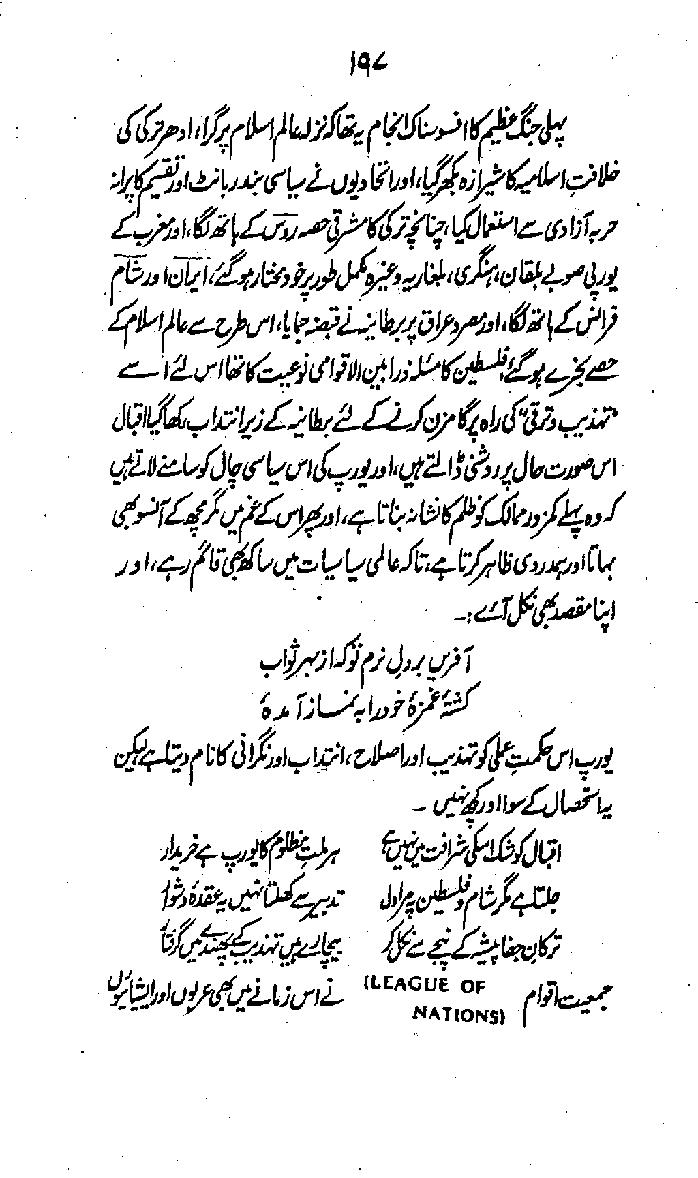 ۱۹۸
پہلی جنگ عظیم کا افسوسناک انجام یہ تھا کہ نزلہ عالم اسلام پر گرا، ادھر ترکی کی
خلافتِ اسلامیہ کا شیرازہ بکھر گیا، اور اتحادیوں نے سیاسی بندر بانٹ اور تقسیم کا پرانہ
حربہ آزادی سے استعمال کیا، چنانچہ ترکی کا مشرقی حصہ روس کے ہاتھ لگا، اور مغرب کے
یورپی صوبے بلقان، ہنگری، بلغاریہ وغیرہ مکمل طور پر خود مختار ہو گئے، ایران اور شام
فرانس کے ہاتھ لگا، اور مصر و عراق پر برطانیہ نے قبضہ جمایا، اس طرح سے عالم اسلام کے
حصے بخرے ہو گئے، فلسطین کا مسئلہ ذرا بین الاقوامی نوعیت کا تھا اس لئے اسے
"تہذیب و ترقی" کی راہ پر گامزن کرنے کے لئے برطانیہ کے زیر انتداب رکھا گیا اقبال
اس صورت حال پر روشنی ڈالتے ہیں، اور یورپ کی اس سیاسی چال کو سامنے لاتے ہیں
کہ وہ پہلے کمزور ممالک کو ظلم کا نشانہ بناتا ہے، اور پھر اس کے غم میں مگرمچھ کے آنسو بھی
بہاتا اور ہمدردی ظاہر کرتا ہے، تاکہ عالمی سیاسیات میں ساکھ بھی قائم رہے، اور
اپنا مقصد بھی نکل آئے :۔
آفریں بر دلِ نرم تو کہ از بہر ثواب
کشتۂ غمزۂ خود را بہ نماز آمدہ
یورپ اس حکمتِ عملی کو تہذیب اور اصلاح، انتداب اور نگرانی کا نام دیتا ہے لیکن
یہ استحصال کے سوا اور کچھ نہیں ۔
اقبال کو شک اسکی شرافت میں نہیں ہے ہر ملتِ مظلوم کا یورپ ہے خریدار
جلتا ہے مگر شام و فلسطین پہ مرا دل تدبیر سے کھلتا نہیں یہ عقدۂ دشوار
ترکانِ جفا پیشہ کے پنجے سے نکل کر بیچارے ہیں تہذیب کے پھندے میں گرفتار
جمعیت اقوام (LEAGUE OF NATIONS) نے اس زمانے میں بھی عربوں اور ایشیائیوں